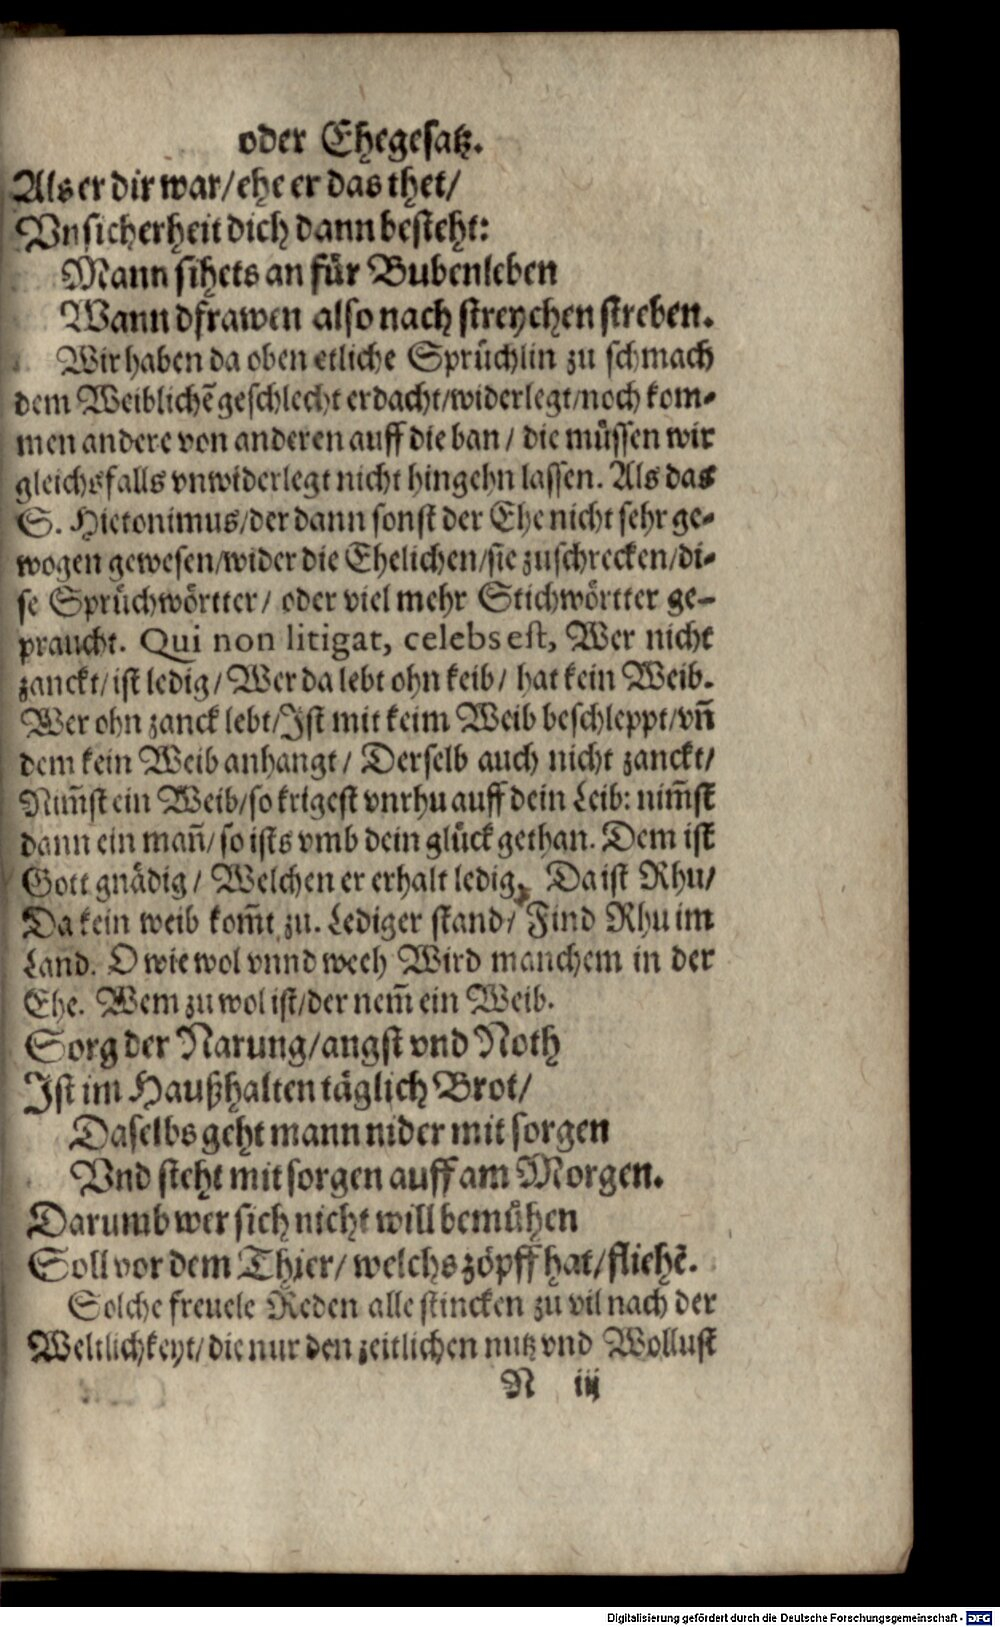 oder Ehegesatz.
Als er dir war/ ehe er das thet/
Vnsicherheit dich dann besteht:
Mann sihets an für Bubenleben
Wann dfrawen also nach streychen streben.
Wir haben da oben etliche Sprüchlin zu schmach
dem Weiblichē geschlecht erdacht/widerlegt/noch kom-
men andere von anderen auff die ban/ die müssen wir
gleichsfalls vnwiderlegt nicht hingehn lassen. Als das
S. Hieronimus/der dann sonst der Ehe nicht sehr ge-
wogen gewesen/wider die Ehelichen/sie zuschrecken/di-
se Sprüchwörtter/ oder viel mehr Stichwörtter ge-
praucht. Qui non litigat, celebs est, Wer nicht
zanckt/ist ledig/ Wer da lebt ohn keib/ hat kein Weib.
Wer ohn zanck lebt/Ist mit keim Weib beschleppt/vñ
dem kein Weib anhangt/ Derselb auch nicht zanckt/
Nim̃st ein Weib/so krigest vnrhu auff dein Leib: nim̃st
dann ein mañ/ so ists vmb dein glück gethan. Dem ist
Gott gnädig/ Welchen er erhalt ledig, Da ist Rhu/
Da kein weib kom̃t zu. Lediger stand/ Find Rhu im
Land. O wie wol vnnd weeh Wird manchem in der
Ehe. Wem zu wol ist/der nem̃ ein Weib.
Sorg der Narung/angst vnd Noth
Ist im Haußhalten täglich Brot/
Daselbs geht mann nider mit sorgen
Vnd steht mit sorgen auff am Morgen.
Darumb wer sich nicht will bemühen
Soll vor dem Thier/ welchs zöpff hat/fliehē.
Solche freuele Reden alle stincken zu vil nach der
Weltlichkeyt/ die nur den zeitlichen nutz vnd Wollust
N iij
Digitalisierung gefördert durch die Deutsche Forschungsgemeinschaft - DFG